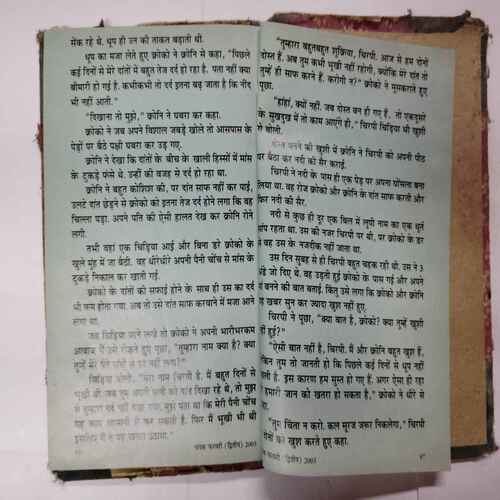 सेंक रहे थे. धूप ही उन की ताकत बढ़ाती थी.
धूप का मजा लेते हुए क्रोको ने क्रोनि से कहा, "पिछले
कई दिनों से मेरे दांतों में बहुत तेज दर्द हो रहा है. पता नहीं क्या
बीमारी हो गई है. कभीकभी तो दर्द इतना बढ़ जाता है कि नींद
भी नहीं आती."
"दिखाना तो मुझे," क्रोनि ने घबरा कर कहा.
क्रोको ने जब अपने विशाल जबड़े खोले तो आसपास के
पेड़ों पर बैठे पक्षी घबरा कर उड़ गए.
क्रोनि ने देखा कि दांतों के बीच के खाली हिस्सों में मांस
के टुकड़े फंसे थे. उन्हीं की वजह से दर्द हो रहा था.
क्रोनि ने बहुत कोशिश की, पर दांत साफ नहीं कर पाई,
उलटे दांत छेड़ने से क्रोको को इतना तेज दर्द होने लगा कि वह
चिल्ला पड़ा. अपने पति की ऐसी हालत देख कर क्रोनि रोने
लगी.
तभी वहां एक चिड़िया आई और बिना डरे क्रोको के
खुले मुंह में जा बैठी. वह धीरेधीरे अपनी पैनी चोंच से मांस के
टुकड़े निकाल कर खाती गई.
क्रोको के दांतों की सफाई होने के साथ ही उस का दर्द
भी कम होता गया. अब तो उसे दांत साफ करवाने में मजा आने
लगा था.
जब चिड़िया जाने लगी तो क्रोको ने अपनी भारीभरकम
आवाज में उसे रोकते हुए पूछा, "तुम्हारा नाम क्या है? क्या
तुम्हें मेरे पैने दांतों से डर नहीं लगा?"
चिड़िया बोली, "मेरा नाम चिरपी है. मैं बहुत दिनों से
भूखी थी. जब तुम अपनी पत्नी को दांत दिखा रहे थे, तो मुझ
से तुम्हारा दर्द नहीं देखा गया. मुझे पता था कि मेरी पैनी चोंच
यह काम आसानी से कर सकती है. फिर मैं भूखी भी थी
इसलिए मैं ने यह खतरा उठाया."
चंपक फरवरी (द्वितीय) 2003
"तुम्हारा बहुतबहुत शुक्रिया, चिरपी. आज से हम दोनों
दोस्त हैं. अब तुम कभी भूखी नहीं रहोगी, क्योंकि मेरे दांत तो
तुम्हें ही साफ करने हैं. करोगी न?" क्रोको ने मुसकराते हुए
पूछा.
"हांहां, क्यों नहीं. जब दोस्त बन ही गए हैं. तो एकदूसरे
के सुखदुख में तो काम आएंगे ही," चिरपी चिड़िया भी खुशी
से बोली.
दोस्त बनने की खुशी में क्रोनि ने चिरपी को अपनी पीठ
पर बैठा कर नदी की सैर कराई.
चिरपी ने नदी के पास ही एक पेड़ पर अपना घोंसला बना
लिया था. वह रोज क्रोको और क्रोनि के दांत साफ करती और
फिर नदी की सैर.
नदी से कुछ ही दूर एक बिल में लूपी नाम का एक धूर्त
सांप रहता था. उस की नजर चिरपी पर थी, पर क्रोको के डर
से वह उस के नजदीक नहीं जाता था.
उस दिन सुबह से ही चिरपी बहुत चहक रही थी. उस ने 3
अंडे जो दिए थे. वह उड़ती हुई क्रोको के पास गई और अपने
मां बनने की बात बताई. किंतु उसे लगा कि क्रोको और क्रोनि
यह खबर सुन कर ज्यादा खुश नहीं हुए.
चिरपी ने पूछा, "क्या बात है, क्रोको? क्या तुम्हें खुशी
नहीं हुई?"
"ऐसी बात नहीं है, चिरपी. मैं और क्रोनि बहुत खुश हैं,
लेकिन तुम तो जानती हो कि पिछले कई दिनों से धूप नहीं
निकली है. इस कारण हम सुस्त हो गए हैं. अगर ऐसा ही रहा
तो हमारी जान को खतरा हो सकता है," क्रोको ने धीरे से
कहा.
"तुम चिंता न करो. कल सूरज जरूर निकलेगा," चिरपी
दोनों को खुश करते हुए कहा.
फरवरी (द्वितीय) 2003